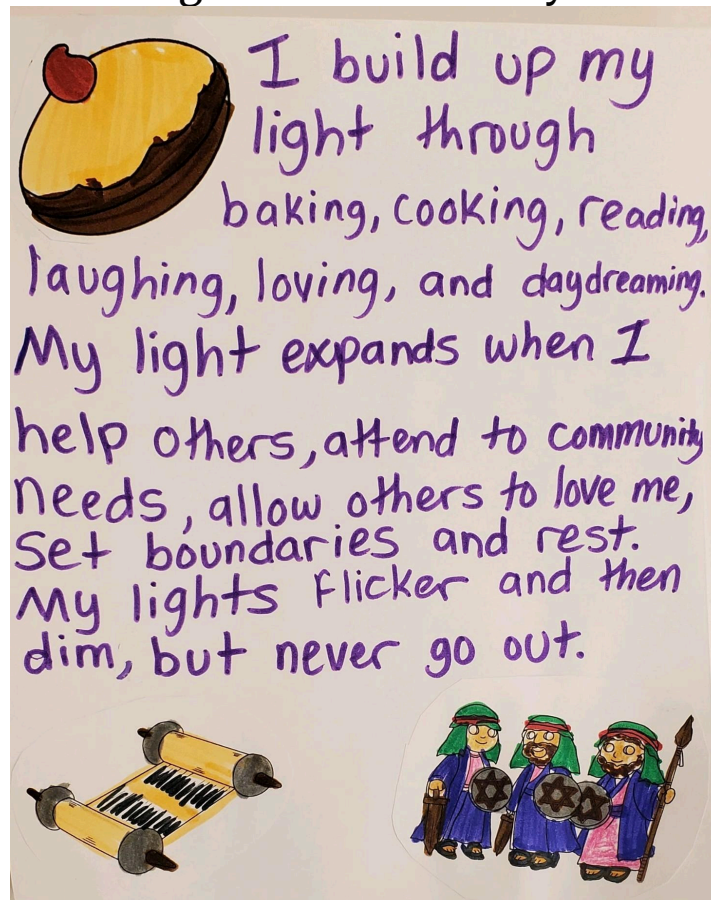 I build up my
light through
baking, cooking, reading,
laughing, loving, and daydreaming.
My light expands when I
help others, attend to community
needs, allow others to love me,
set boundaries and rest.
My lights flicker and then
dim, but never go out.